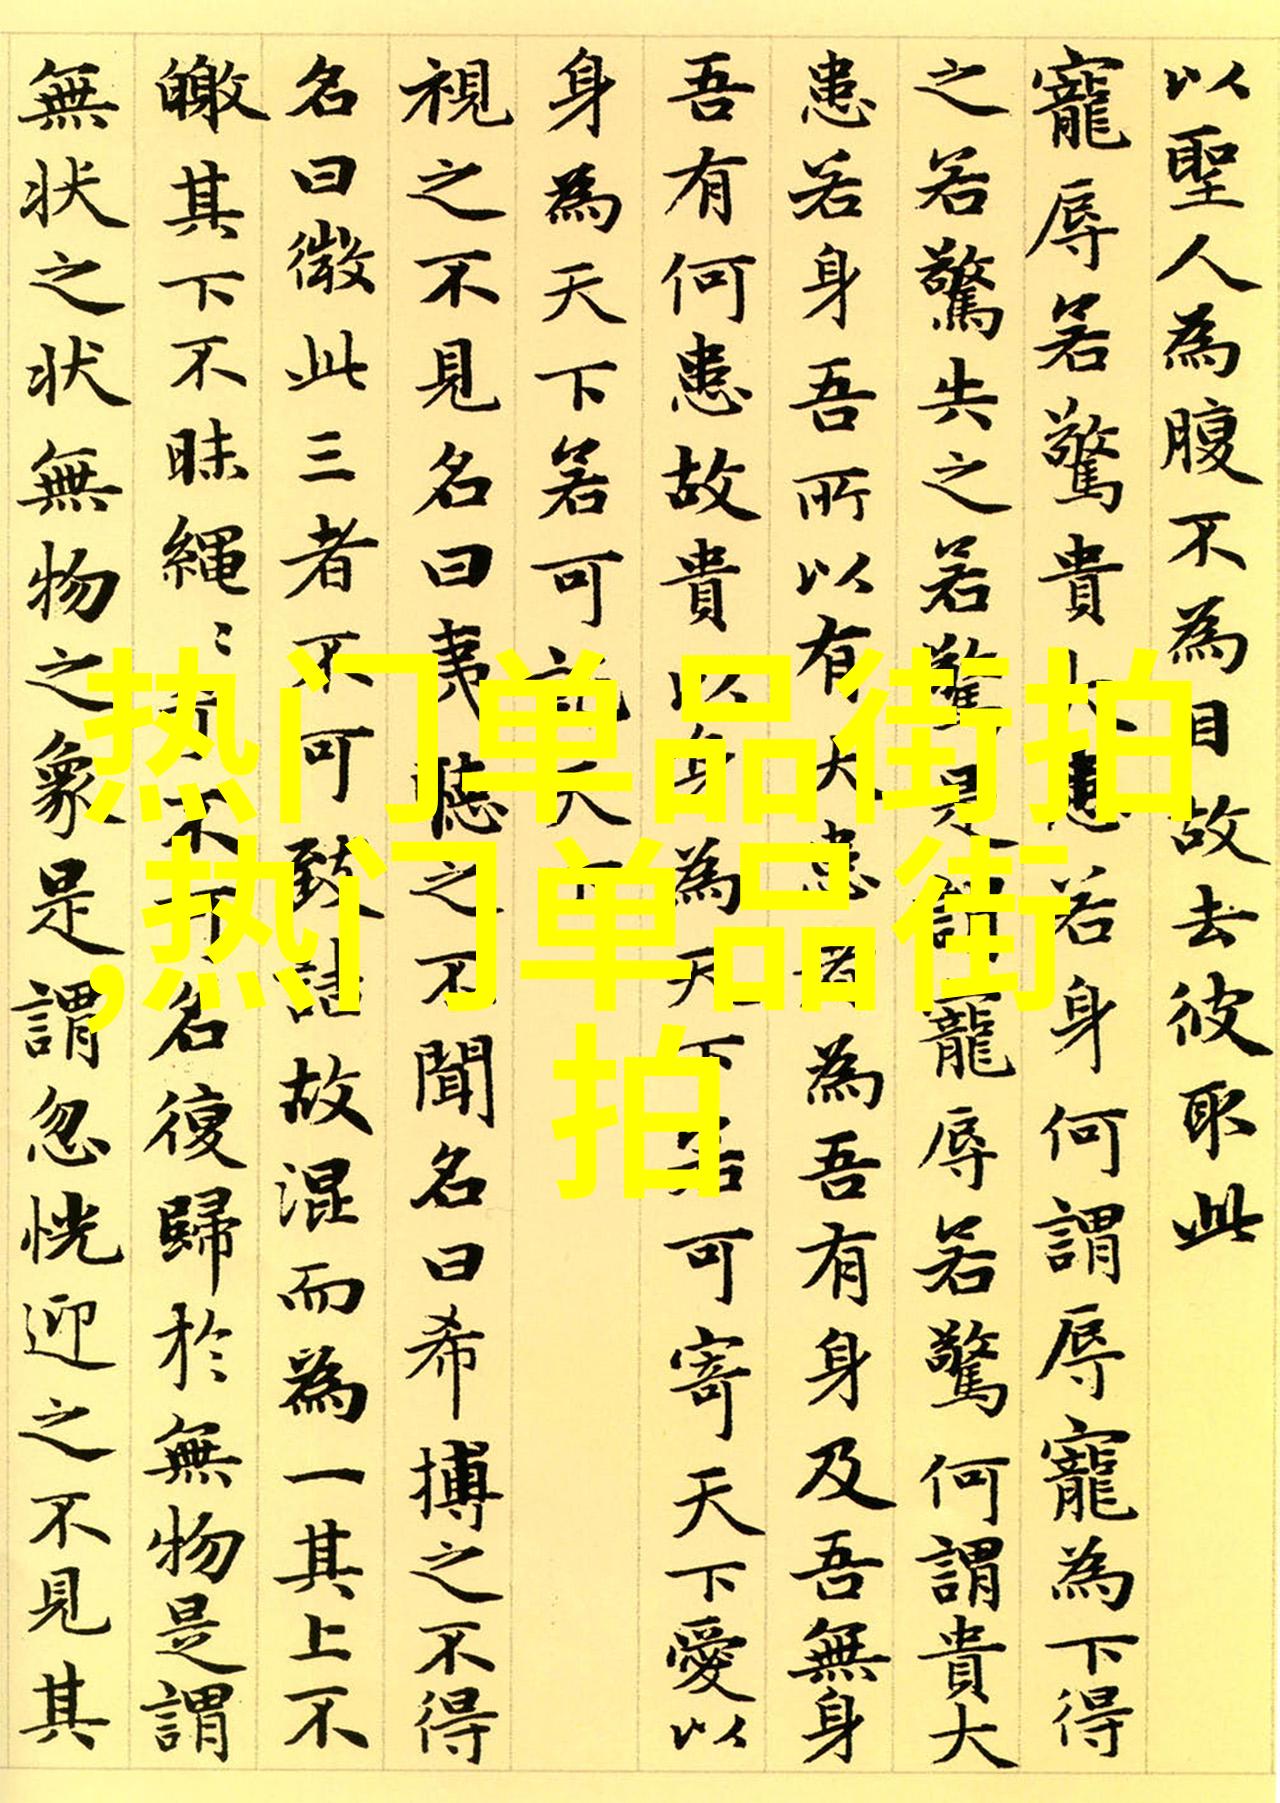 以聖人為腹不為目故去彼取此
寵辱若驚貴大患若身何謂辱寵為下得
之若驚失之若驚是謂寵辱若驚何謂貴大
患若身吾所以有大患者為吾有身及吾無身
吾有何患故貴以身為天下若可寄天下愛以
身為天下若可託天下
視之不見名曰夷聽之不聞名曰希搏之不得
名曰微此三者不可致詰故混而為一其上不
皦其下不昧繩〻兮不可名復歸於無物是謂
無狀之狀無物之象是謂忽恍迎之不見其
热门单品街拍
,热门单品街
拍